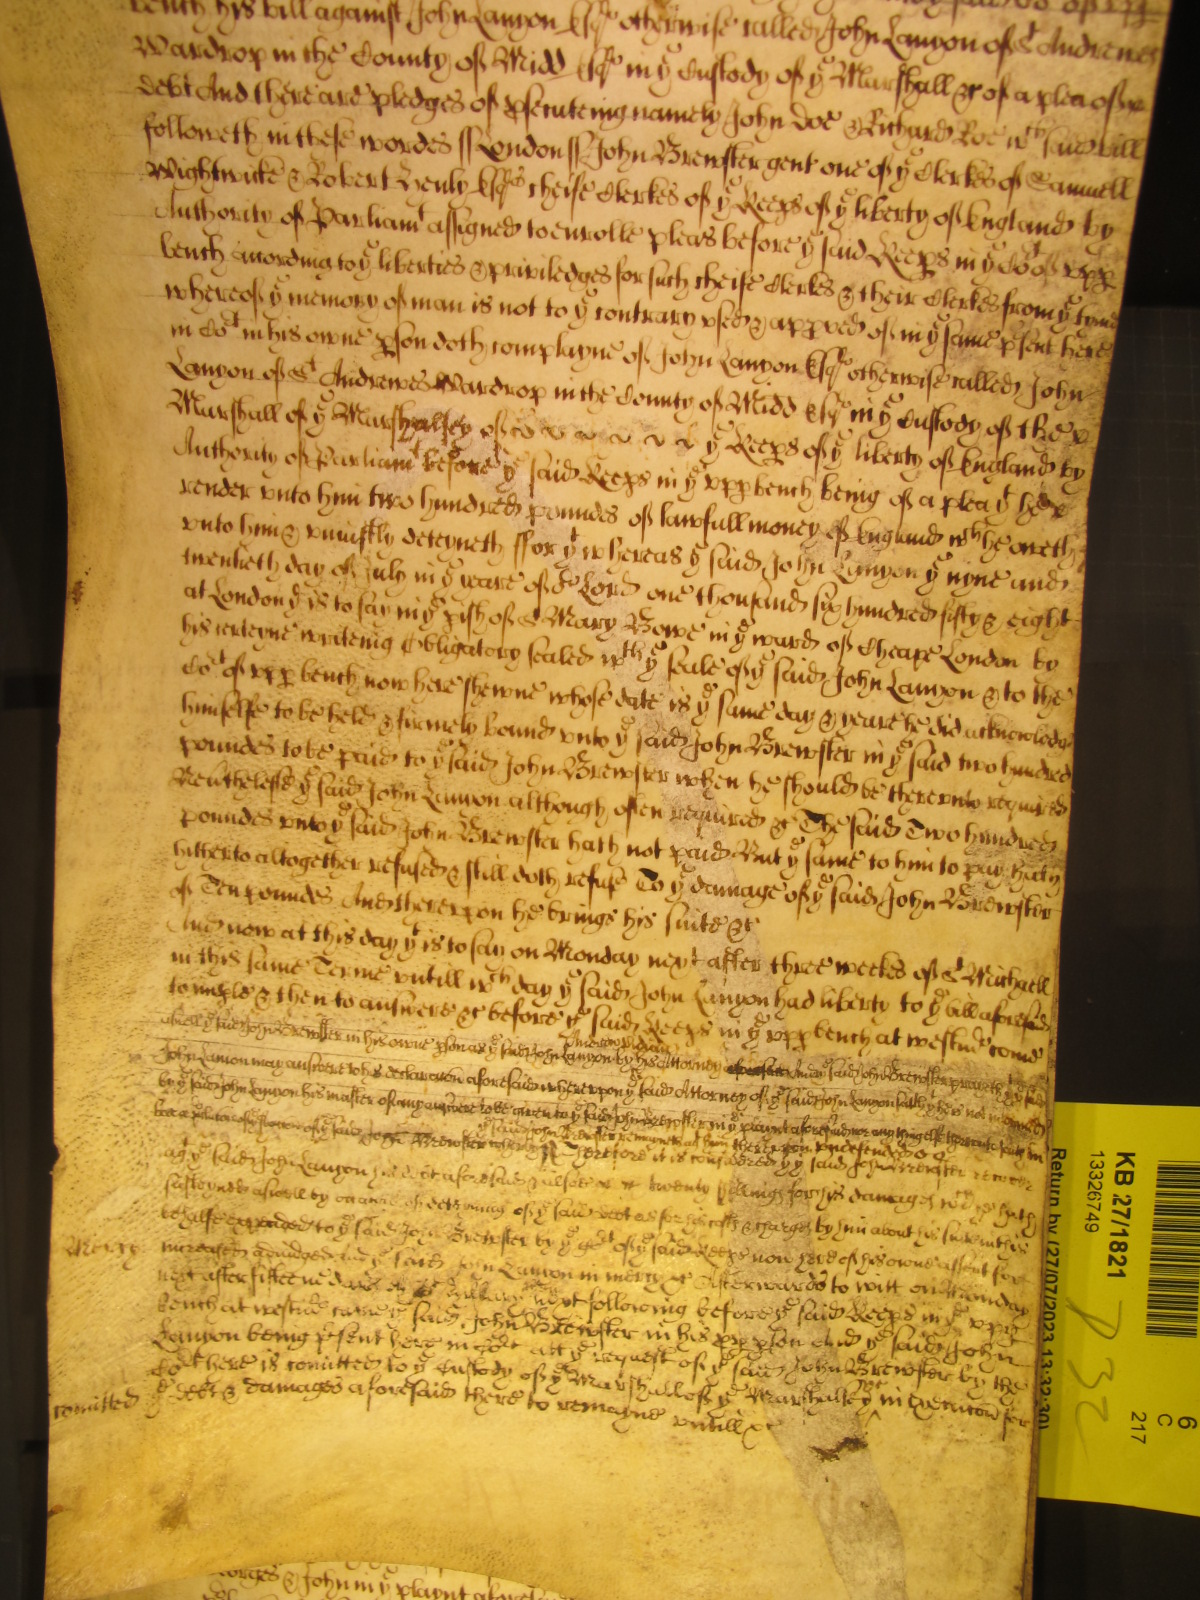 bench his bill against John Lanyon Esqr otherwise called John Lanyon of St Andrewes
Wardrop in the County of Midd Esqr in ye Custody of ye Marshall &c of a plea of
debt And there are pledges of psecuteing namely John Doe & Richard Roe wch said bill
followeth in these wordes ss London ss John Brewster gent one of ye Clerkes of Samuell
Wightwicke & Robert Henly Esqrs cheife Clerkes of ye Keeps of ye liberty of England by
Authority of Parliamt assigned to enrolle pleas before ye said Keeps in ye Cot of upp
bench according to ye liberties & priviledges for such cheife Clerkes & their Clerkes from ye tyme
whereof ye memory of man is not to ye contrary used & appved of in ye same psent here
in Cot in his owne pson doth complayne of John Lanyon Esqr otherwise called John
Lanyon of St Andrewes Wardrop in the County of Midd Esqr in ye Custody of the
Marshall of ye Marshalsey of ye Keeps of ye liberty of England by
Authority of Parliamt before ye said Keeps in ye upp bench being of a plea yt he
render unto him two hundred poundes of lawfull money of England wch he oweth
unto him & uniustly deteyneth ffor yt whereas ye said John Lanyon ye nyne and
twentieth day of July in ye yeare of or Lord one thousand six hundred fifty & eight
at London yt is to say in ye pish of St Mary Bowe in ye ward of Cheape London by
his certeyne writeing Obligatory sealed wth ye seale of ye said John Lanyon & to the
Cot of upp bench now here shewne whose date is ye same day & yeare he did acknowledge
himselfe to be held & firmely bound unto ye said John Brewster in ye said two hundred
poundes to be paid to ye said John Brewster when he should be thereunto required
Neutheless ye said John Lanyon although often required &c The said Two hundred
poundes unto ye said John Brewster hath not paid But ye same to him to pay hath
hitherto altogether refused & still doth refuse To ye damage of ye said John Brewster
of Ten poundes And thereupon he brings his suite &c
And now at this day yt is to say on Monday next after three weekes of St Michaell
in this same Terme untill wch day ye said John Lanyon had liberty to ye bill aforesaid
to imple & then to answere &c before ye said Keeps in ye upp bench at Westmr come
aswell ye said John Brewster in his owne pson as ye said John Lanyon by his Attorney And ye said John Brewster prayeth yt ye said
John Lanyon may answere to his declaracon aforesaid whereupon ye said Attorney of ye said John Lanyon saith yt he is not informed
by ye said John Lanyon his master of any answere to be given to ye said John Brewster in ye playnt aforesaid nor any thing else
ye said John Brewster remaynes agt him thereupon undefended &c
Therefore it is considered yt ye said John Brewster recover
agt ye said John Lanyon his debt aforesaid & alsoe twenty shillings for his damages wch he hath
susteyned aswell by occasion of deteyning of ye said debt as for his costs & charges by him about his suite in this
behalfe expended to ye said John Brewster by ye Cot of ye said Keeps now here of his owne assent for
Mercy
increase adiudged And ye said John Lanyon in mercy &c Afterwards to witt on Munday
next after fifteene dayes of St Hillary next following before ye said Keeps in ye upp
bench at Westmr came ye said John Brewster in his pp pson And ye said John
Lanyon being psent here in Cot att ye request of ye said John Brewster by the
Cot here is comitted to ye Custody of ye Marshall of ye Marshalsey in Execucon for
comitted
ye debt & damages aforesaid there to remayne untill &c
John in ye playnt aforesaid
KB 27/1821
13326749
Return by (27/07/2023 13:32:30)
6
C
217